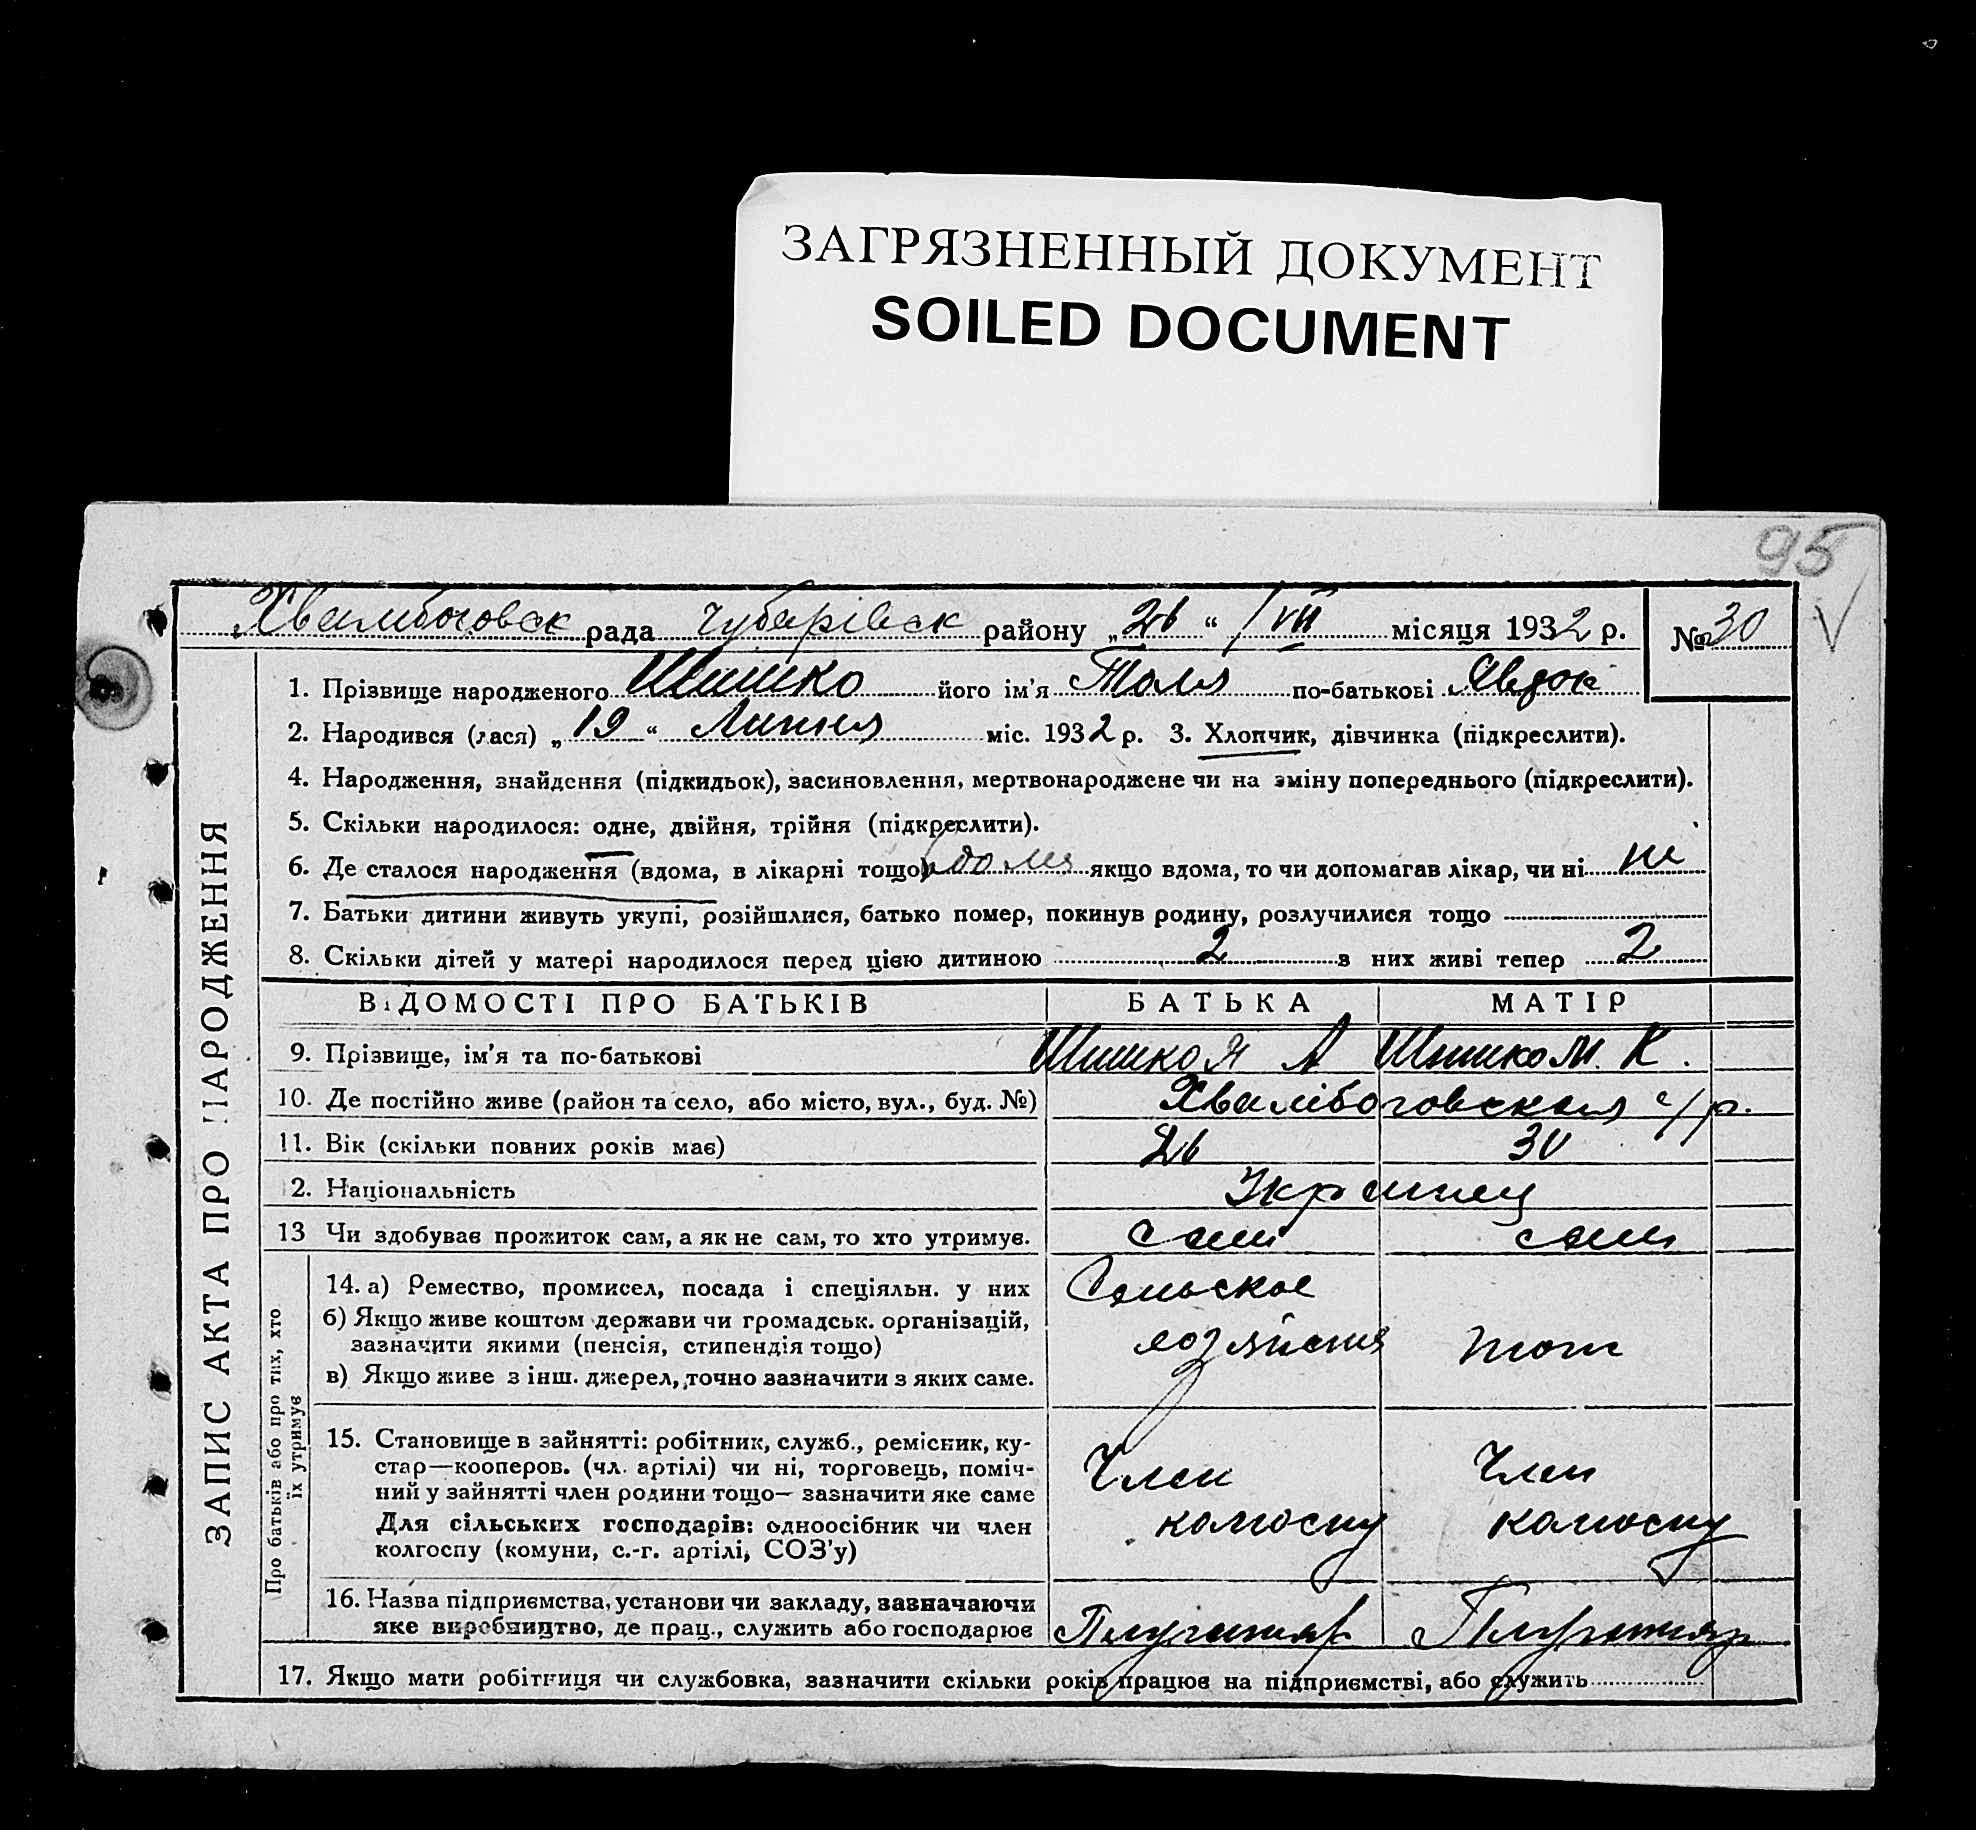 ЗАГРЯЗНЕННЫЙ ДОКУМЕНТ
SOILED DOCUMENT
95
Хвалибоговск рада Чубарівск району „26“ VII місяця 1932 р. № 30
1. Прізвище народженого Шишко його ім'я Толя по-батькові
2. Народився (лася) „19“ Липня міс. 1932 р. 3. Хлопчик, дівчинка (підкреслити).
4. Народження, знайдення (підкидьок), засиновлення, мертвонароджене чи на зміну попереднього (підкреслити).
5. Скільки народилося: одне, двійня, трійня (підкреслити).
6. Де сталося народження (вдома, в лікарні тощо) дома якщо вдома, то чи допомагав лікар, чи ні ні
7. Батьки дитини живуть укупі, розійшлися, батько помер, покинув родину, розлучилися тощо
8. Скільки дітей у матері народилося перед цією дитиною 2 з них живі тепер 2
ЗАПИС АКТА ПРО НАРОДЖЕННЯ
ВІДОМОСТІ ПРО БАТЬКІВ БАТЬКА МАТІР
9. Прізвище, ім'я та по-батькові Шишко Я А Шишко М. К.
10. Де постійно живе (район та село, або місто, вул., буд. №) Хвалібоговская с/р.
11. Вік (скільки повних років має) 26 30
12. Національність Украинец
13 Чи здобуває прожиток сам, а як не сам, то хто утримує. сам сам
Про батьків або про тих, хто
їх утримує
14. а) Ремество, промисел, посада і спеціяльн. у них Сельское
б) Якщо живе коштом держави чи громадськ. організацій,
зазначити якими (пенсія, стипендія тощо) хозяйство тот
в) Якщо живе з інш. джерел, точно зазначити з яких саме.
15. Становище в зайнятті: робітник, служб., ремісник, ку-
стар—кооперов. (чл. артілі) чи ні, торговець, поміч- Член Член
ний у зайнятті член родини тощо— зазначити яке саме
Для сільських господарів: одноосібник чи член колгоспу колгоспу
колгоспу (комуни, с.-г. артілі, СОЗ'у)
16. Назва підприємства, установи чи закладу, зазначаючи
яке виробництво, де прац., служить або господарює Плугатар Плугатар
17. Якщо мати робітниця чи службовка, зазначити скільки років працює на підприємстві, або служить